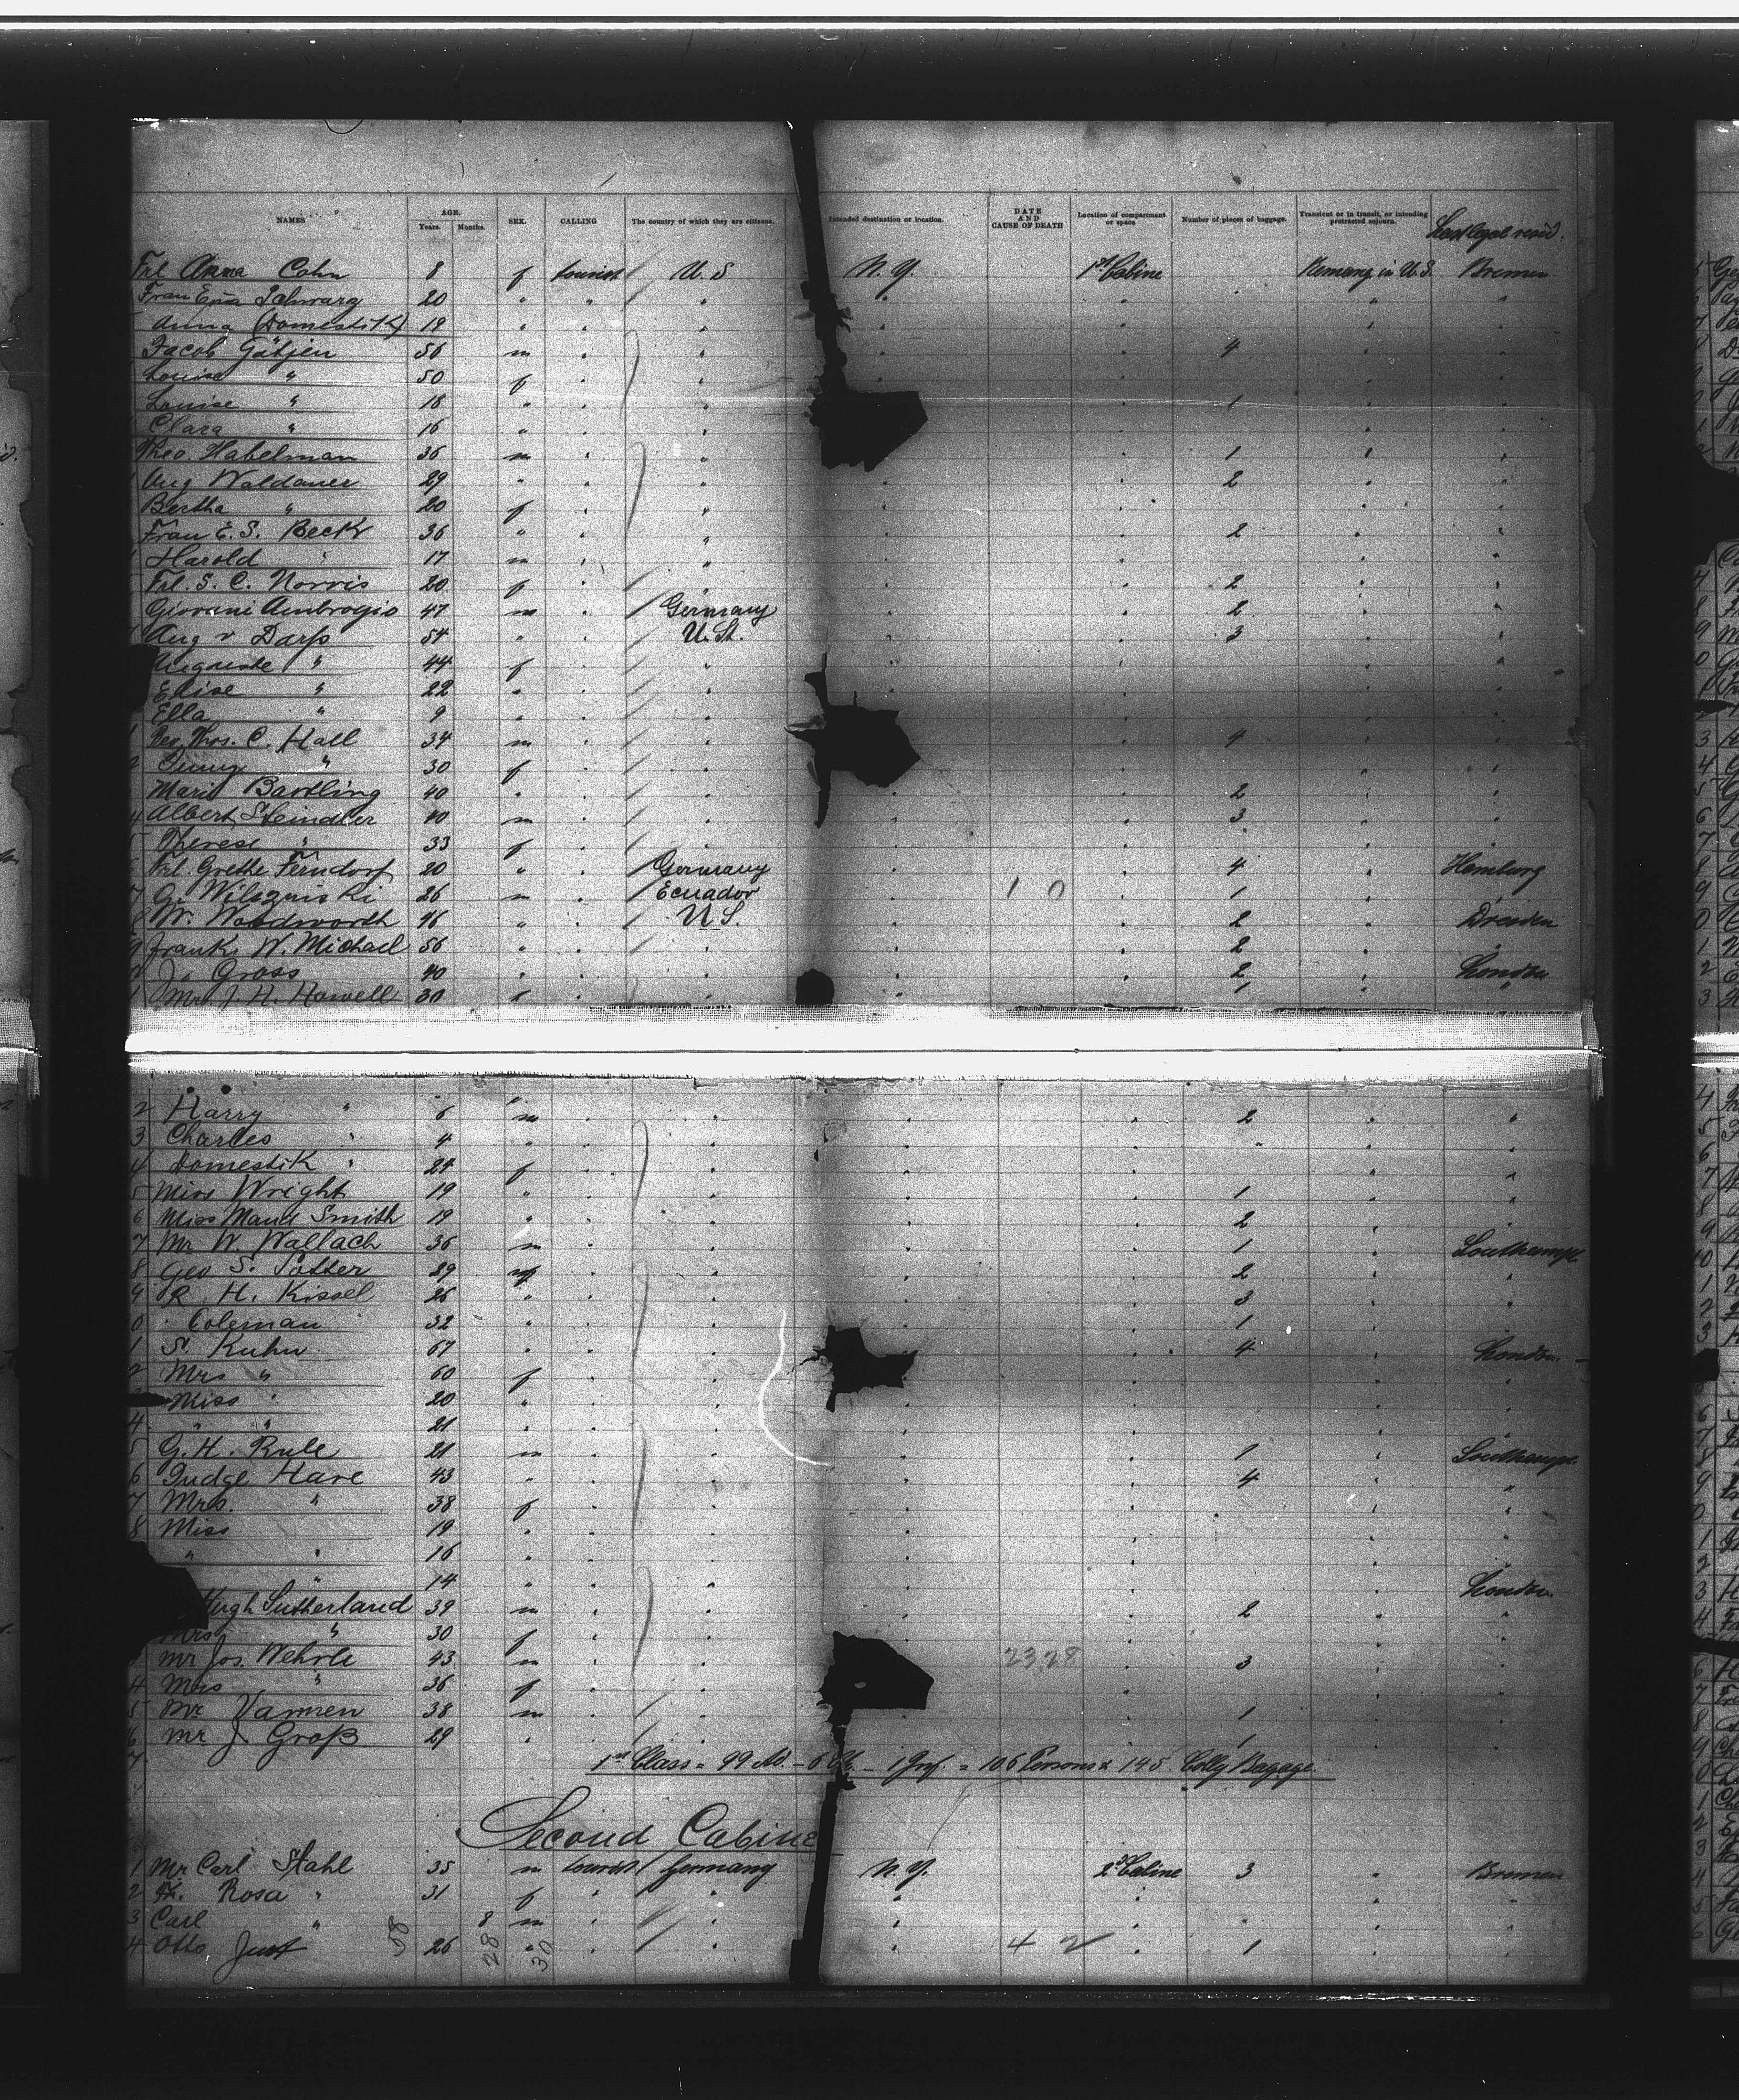 NAMES AGE. Years. Months. SEX. CALLING The country of which they are citizens. Intended destination or location. DATE AND CAUSE OF DEATH Location of compartment or space Number of pieces of baggage. Transient or in transit, or intending protracted sojourn. Last legal resid.
Frl Anna Cohn 8 f tourist U. S N. Y. 1st Cabine Remang in U. S. Bremen
Frau Schwarz 20 " " "
Anna (Domestik) 19 " " "
Jacob Gätjen 56 m " " 4
Louise " 50 f " "
Louise " 18 " " " 1
Clara " 16 " " "
Theo. Habelman 36 m " " 1
Aug Waldauer 29 " " " 2
Bertha " 20 f " "
Frau E. S. Beck 36 " " " 2
Harold " 17 m " "
Frl. S. C. Norris 20 f " " 2
Giovani Ambrogio 47 m " Germany 2
Aug v Darss 54 " " U. St. 3
Auguste " 44 f " "
Elise " 22 " " "
Ella " 9 " " "
Rev. Thos. C. Hall 34 m " " 4
" 30 f " "
Marie Bartling 40 " " " 2
Albert Steindler 40 m " " 3
Therese " 33 f " "
Frl. Grethe Ferndorf 20 " " Germany 4 Hamburg
G. Wilczinski 26 m " Ecuador 1 0 1
W. Woodworth 46 " " U S. 2 Dresden
Frank W. Michael 56 " " " 2 "
J. Gross 40 " " " 2 London
Mrs J. H. Howell 30 f " " 1 "
2 Harry " 6 m " " 2 "
3 Charles " 4 " " "
4 Domestik " 24 f " "
5 Miss Wright 19 " " " 1
6 Miss Maud Smith 19 " " " 2
7 Mr W. Wallach 36 m " " 1 Southampt
8 Geo S. Potter 29 m " " 2
9 R. H. Kissel 26 " " " 3
0 Coleman 32 " " " 1
1 S. Kuhn 67 " " " 4 London
2 Mrs " 60 f " "
Miss " 20 " " "
4 " " 21 " " "
5 G. H. Rule 21 m " " 1 Southampt
6 Judge Hare 43 " " " 4 "
7 Mrs. " 38 f " "
8 Miss 19 " " "
" " 16 " " "
" 14 " " " London
Hugh Sutherland 39 m " " 2 "
Mrs " 30 f " "
Mr Jos. Wehrle 43 m " " 2328 3
4 Mrs " 36 f " "
5 Mr Varmen 38 m " " 1
6 Mr J. Groß 29 " " " 1
7
1st Class = 99 Ad. - 6 Ch. - 1 Inf. = 106 Persons & 145 Colly Bagage.
Second Cabine
1 Mr Carl Stahl 35 m tourist Germany N. Y. 2d Cabine 3 " Bremen
2 Rosa " 31 f " "
3 Carl " 8 m " "
4 Otto Just 58 26 28 " 30 " " 42 1